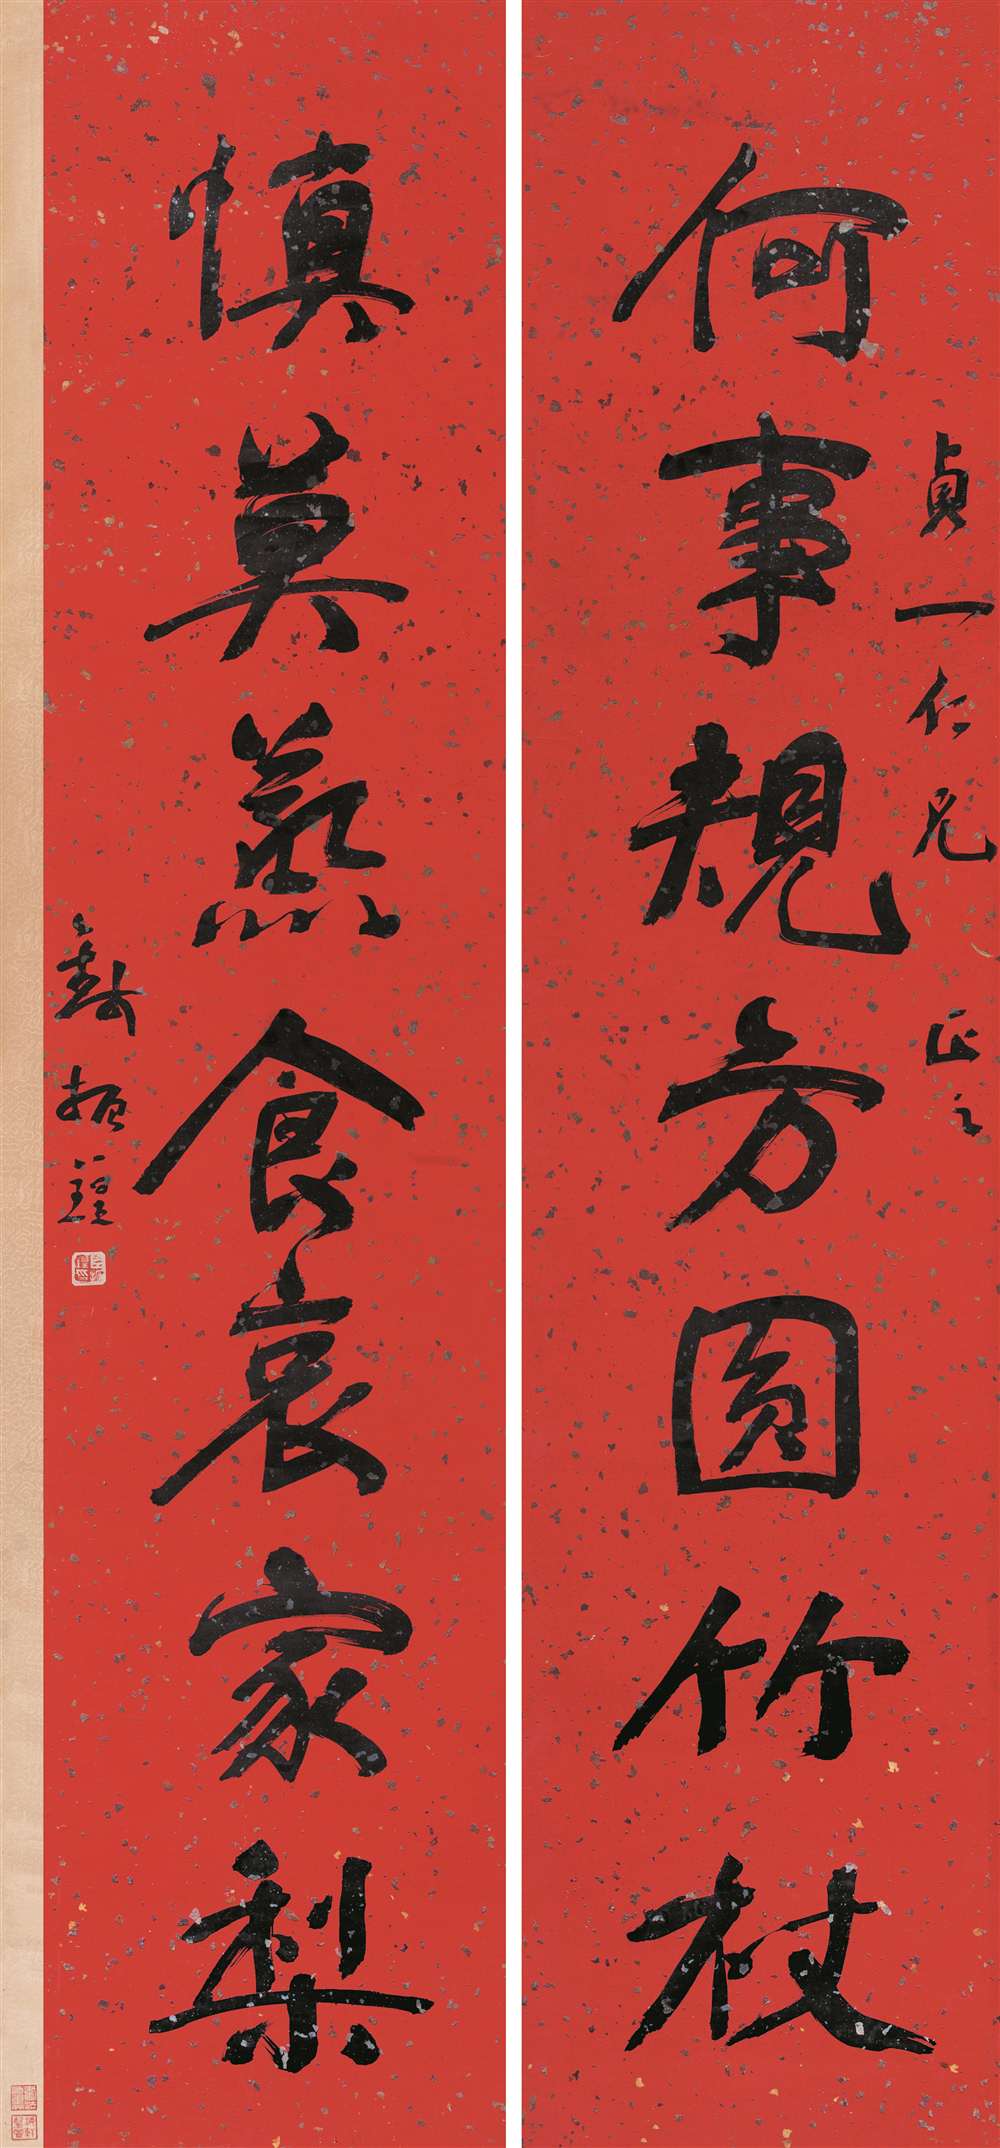 何事規方圓竹杖
貞一仁兄正之
慎莫蒸食哀家梨
鄭振鐸